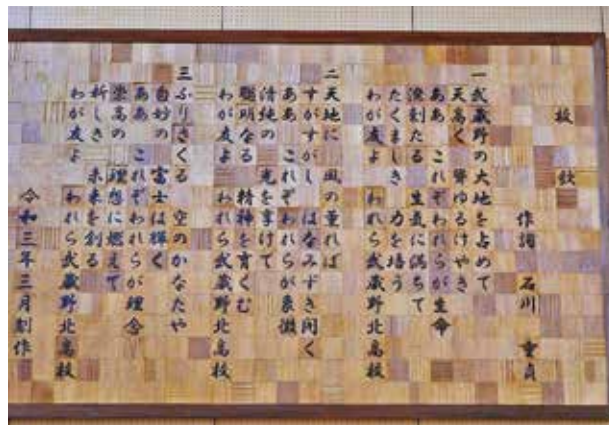 校歌
作詞 石川 重貞
一 武蔵野の大地を占めて
天高く 聳ゆるけやき
ああ これぞわれらが生命
溌剌たる 生気に満ちて
たくましき 力を培う
わが友よ われら武蔵野北高校
二 天地に 風の薫れば
すがすがし はなみずき開く
ああ これぞわれらが象徴
清純の 光を享けて
聡明なる 精神を育くむ
わが友よ われら武蔵野北高校
三 ふりさくる 空のかなたや
白妙の 富士は輝く
ああ これぞわれらが理念
崇高の 理想に燃えて
新しき 未来を創る
わが友よ われら武蔵野北高校
令和三年三月制作